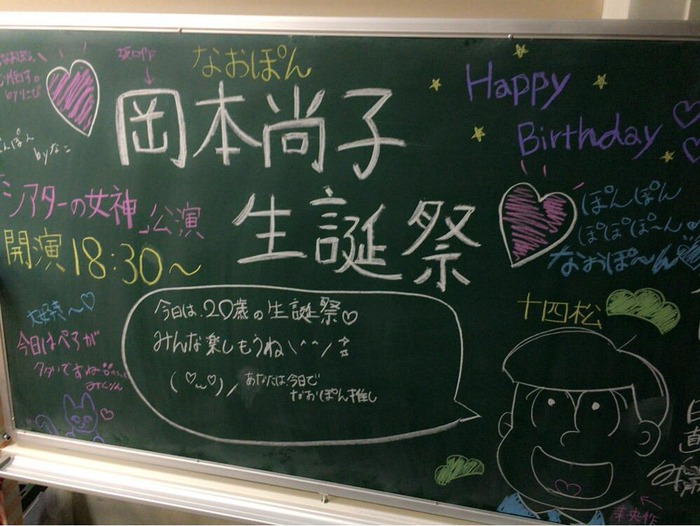 なおぽん
岡本尚子
生誕祭
Happy
Birthday
「シアターの女神」公演
開演18:30〜
ぽんぽん
ぽぽぽ〜ん
なおぽ〜ん
十四松
今日は、20歳の生誕祭♡
みんな楽しもうね\^^/☆
(♡ω♡)/ あなたは今日で
なおぽん推し
大好き〜♡
今日はペアが
多いですね